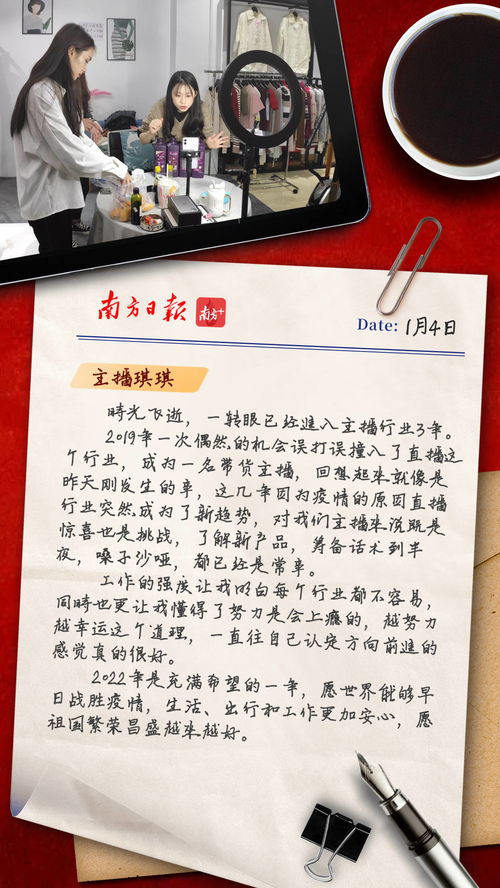 南方日报 南方+
Date: 1月4日
主播琪琪
時光飞逝，一转眼已经進入主播行业3年。
2019年一次偶然的机会误打误撞入了直播这
个行业，成为一名带货主播，回想起来就像是
昨天刚发生的事，这几年因为疫情的原因直播
行业突然成为了新趋势，对我们主播来说既是
惊喜也是挑战，了解新产品，筹备话术到半
夜，嗓子沙哑，都已经是常事。
工作的强度让我明白每个行业都不容易，
同時也更让我懂得了努力是会上瘾的，越努力
越幸运这个道理，一直往自己认定方向前進的
感觉真的很好。
2022年是充满希望的一年，愿世界能够早
日战胜疫情，生活、出行和工作更加安心，愿
祖国繁荣昌盛越来越好。